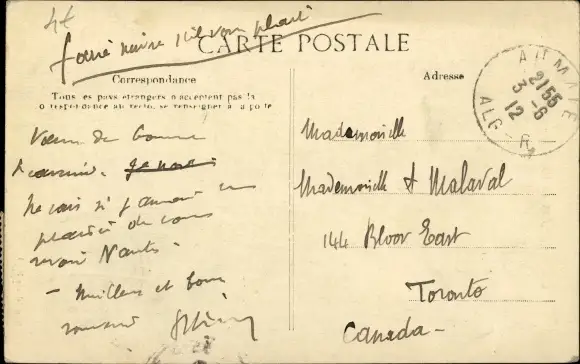 4€
faire suivre s'il vous plait
CARTE POSTALE
Correspondance
Tous les pays étrangers n'acceptent pas la
correspondance au recto, se renseigner à la poste
Adresse
AUMALE
21 55
3 -6
12
ALGER
de bonne
ne sais si j'aurai
plaisir de vous
revoir Nantes
- meilleur et bon
souvenir
Mademoiselle
Mademoiselle Malaval
144 Bloor East
Toronto
Canada -